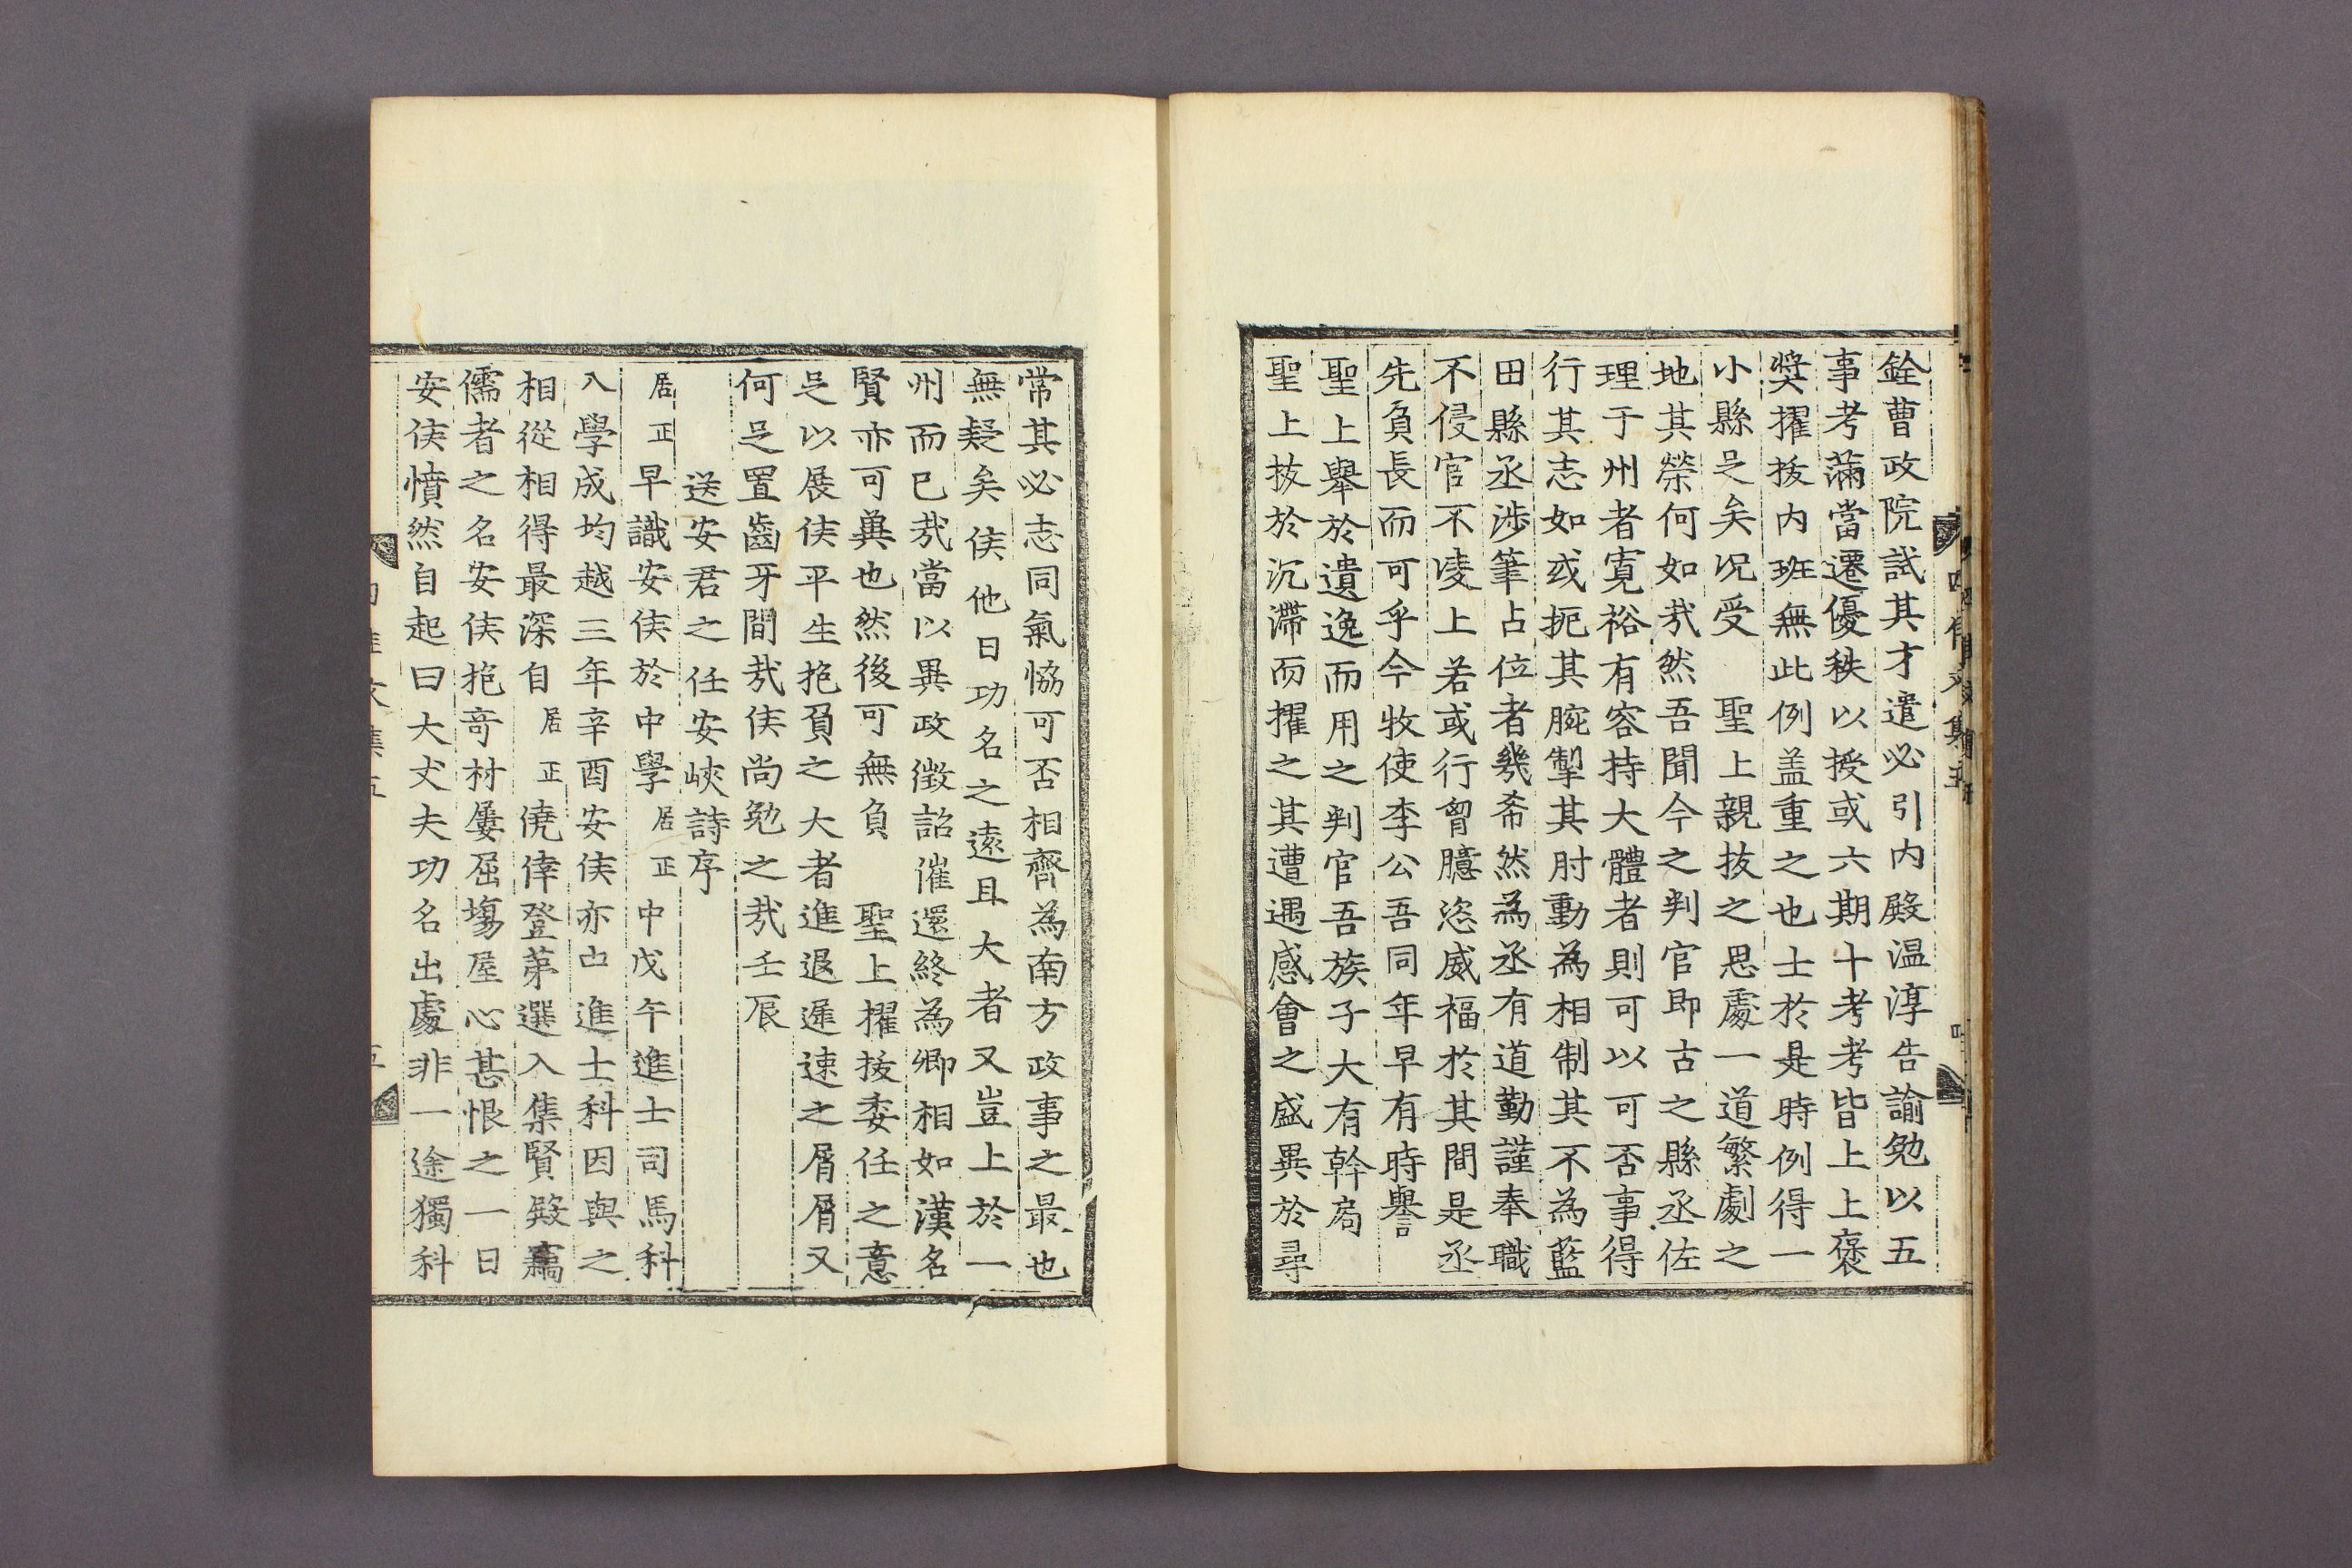 銓曹政院試其才遣必引内殿温淳告諭勉以五
事考滿當遷優秩以授或六期十考考皆上上褒
奬擢拔内班無此例盖重之也士於是時例得一
小縣足矣况受　聖上親拔之恩處一道繁劇之
地其榮何如㢤然吾聞今之判官即古之縣丞佐
理于州者寛裕有容持大體者則可以可否事得
行其志如或扼其腕掣其肘動為相制其不為藍
田縣丞涉筆占位者幾希然為丞有道勤謹奉職
不侵官不凌上若或行胷臆恣威福於其間是丞
先負長而可乎今牧使李公吾同年早有時譽
聖上舉於遺逸而用之判官吾族子大有幹局
聖上拔於沉滯而擢之其遭遇感會之盛異於尋
常其必志同氣恊可否相齊為南方政事之最也
無疑矣侯他日功名之遠且大者又豈上於一
州而已㢤當以異政徵詔催還終為卿相如漢名
賢亦可兾也然後可無負　聖上擢拔委任之意
足以展侯平生抱負之大者進退遲速之屑屑又
何足置齒牙間㢤侯尚勉之㢤壬辰
送安君之任安峽詩序
居正早識安侯於中學居正中戊午進士司馬科
入學成均越三年辛酉安侯亦占進士科因與之
相從相得最深自居正僥倖登苐選入集賢殿竊
儒者之名安侯抱竒材屢屈塲屋心甚恨之一日
安侯憤然自起曰大丈夫功名出處非一途獨科